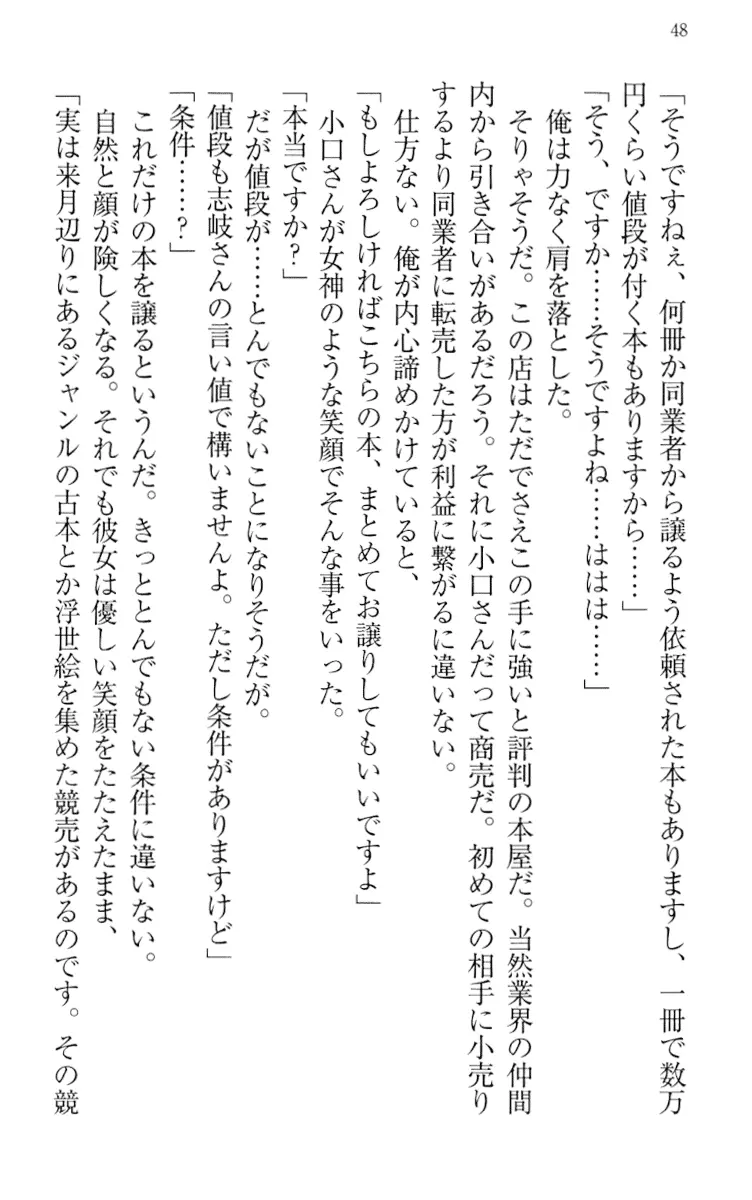 48
「そうですねぇ、何冊か同業者から譲るよう依頼された本もありますし、一冊で数万
円くらい値段が付く本もありますから……」
「そう、ですか……そうですよね……ははは……」
俺は力なく肩を落とした。
そりゃそうだ。この店はただでさえこの手に強いと評判の本屋だ。当然業界の仲間
内から引き合いがあるだろう。それに小口さんだって商売だ。初めての相手に小売り
するより同業者に転売した方が利益に繋がるに違いない。
仕方ない。俺が内心諦めかけていると、
「もしよろしければこちらの本、まとめてお譲りしてもいいですよ」
小口さんが女神のような笑顔でそんな事をいった。
「本当ですか？」
だが値段が……とんでもないことになりそうだが。
「値段も志岐さんの言い値で構いませんよ。ただし条件がありますけど」
「条件……？」
これだけの本を譲るというんだ。きっととんでもない条件に違いない。
自然と顔が険しくなる。それでも彼女は優しい笑顔をたたえたまま、
「実は来月辺りにあるジャンルの古本とか浮世絵を集めた競売があるのです。その競